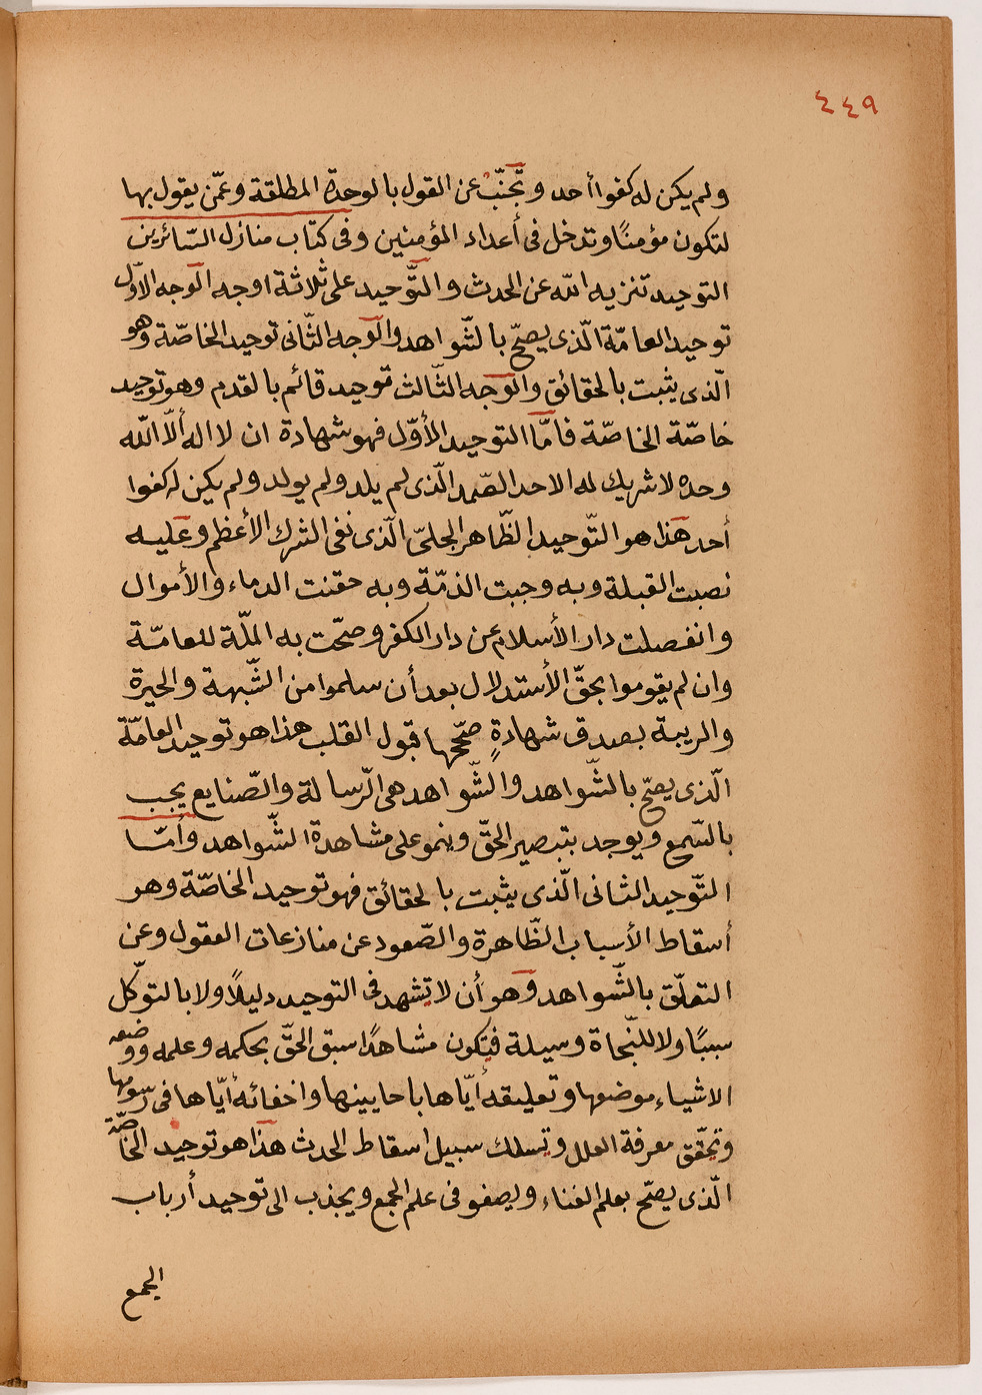 ٤٤٩
ولم يكن له كفوا أحد وتجنّب عن القول بالوحدة المطلقة وعمّن يقول بها
لتكون مؤمنًا وتدخل فى أعداد المؤمنين وفى كتاب منازل السّائرين
التوحيد تنزيه الله عن الحدث والتّوحيد على ثلاثة اوجه الوجه الاوّل
توحيد العامّة الّذى يصحّ بالشّواهد والوجه الثّانى توحيد الخاصّة وهو
الّذى يثبت بالحقائق والوجه الثّالث توحيد قائم بالقدم وهو توحيد
خاصّة الخاصّة فامّا التوحيد الأوّل فهو شهادة ان لا اله ألّا الله
وحده لا شريك له الاحد الصّمد الّذى لم يلد ولم يولد ولم يكن له كفوا
أحد هذا هو التّوحيد الظّاهر الجلىّ الّذى نفى الشرك الأعظم وعليه
نصبت القبلة وبه وجبت الذمّة وبه حقنت الدماء والأموال
وانفصلت دار الأسلام عن دار الكفر وصحّت به الملّة للعامّة
وان لم يقوموا بحقّ الأستدلال بعد أن سلموا من الشّبهة والحيرة
والريبة بصدق شهادةٍ صحّحها قبول القلب هذا هو توحيد العامّة
الّذى يصحّ بالشّواهد والشّواهد هى الرّسالة والصّنايع يجب
بالسّمع ويوجد بتبصير الحقّ وينمو على مشاهدة الشّواهد وأمّا
التّوحيد الثانى الّذى يثبت بالحقائق فهو توحيد الخاصّة وهو
أسقاط الأسباب الظّاهرة والصّعود عن منازعات العقول وعن
التعلّق بالشّواهد وهو أن لا تشهد فى التوحيد دليلًا ولا بالتوّكل
سببًا ولا للنّجاة وسيلة فيكون مشاهدًا سبق الحقّ بحكمه وعلمه ووضعه
الاشياء موضعها وتعليقه أيّاها باحايينها واخفائه أيّاها فى رسومها
وتحقّق معرفة العلل وتسلك سبيل اسقاط الحدث هذا هو توحيد الخاصّة
الّذى يصحّ بعلم الفناء ويصفو فى علم الجمع ويجذب الى توحيد أرباب
الجمع